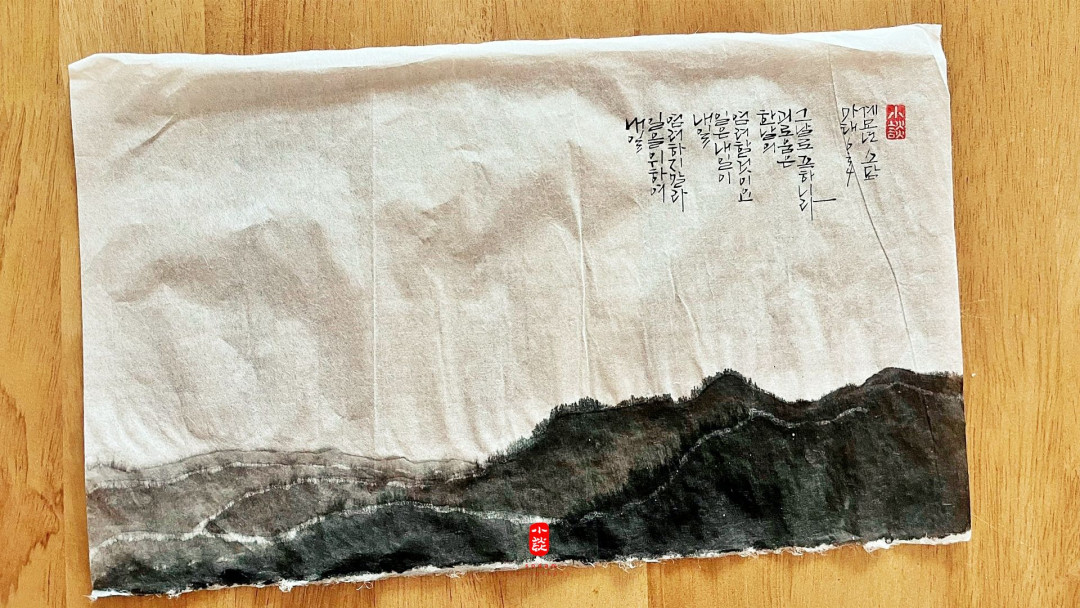 내일
일을위하여
염려하지말라
내일
일은내일이
염려할것이요
한날의
괴로움은
그날로 족하니라
마태 6:34
계묘년 소담
小談
小談